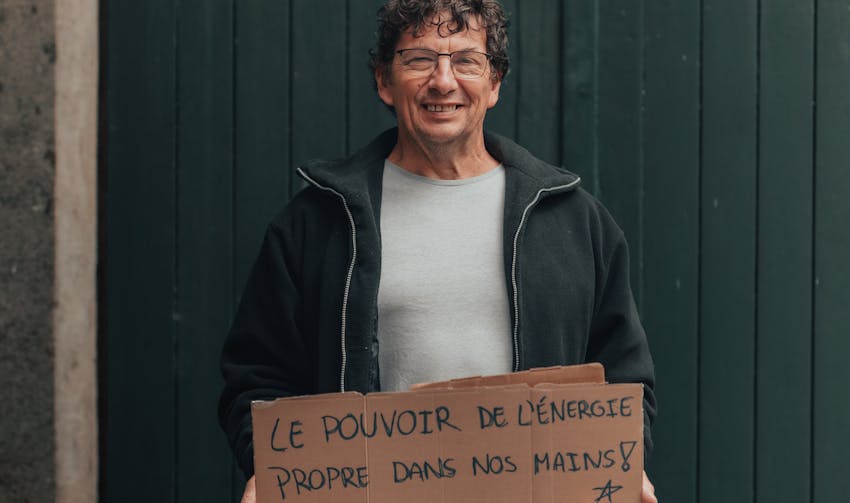 LE POUVOIR DE L'ÉNERGIE
PROPRE DANS NOS MAINS!